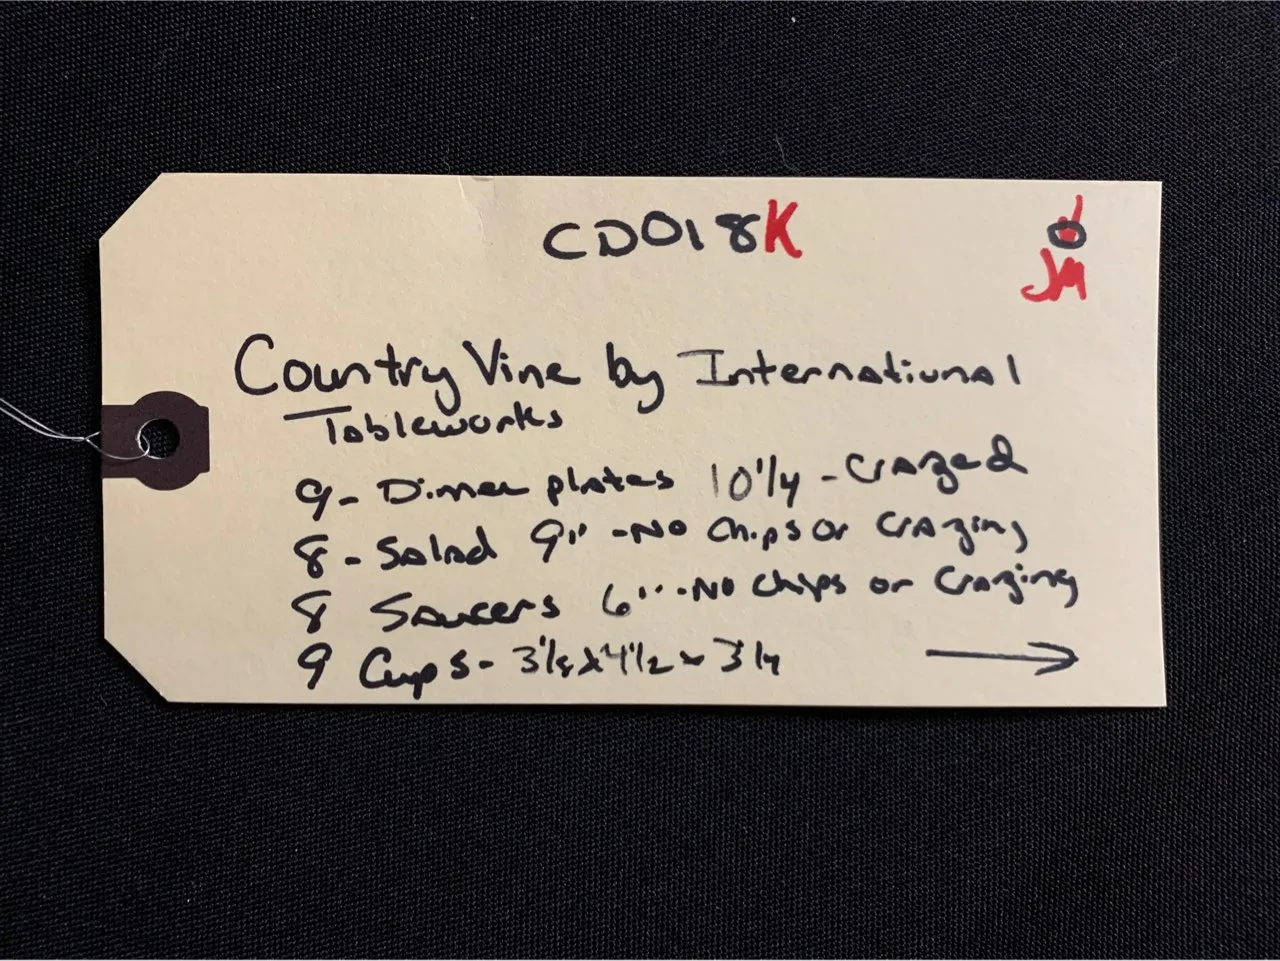 CD018K
JM
Country Vine by International
Tableworks
9 - Dinner plates 10 1/4 - Crazed
8 - Salad 9" - No Chips or Crazing
8 Saucers 6" - No Chips or Crazing
9 Cups - 3 1/8 x 4 1/2 x 3 1/4 →